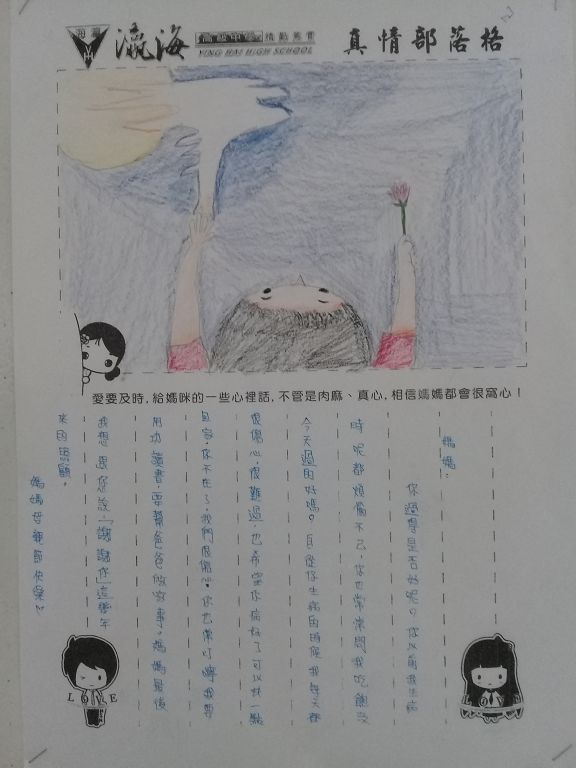 瀛海
高級中學
YING HAI HIGH SCHOOL
真情部落格
愛要及時,給媽咪的一些心裡話,不管是肉麻、真心,相信媽媽都會很窩心!
媽媽:
你過得是否好呢?你以前我生病
時呢都煩惱不已,你也常常問我吃飽沒
今天過的好嗎?自從你生病的時候我每天都
很傷心,很難過,也希望你病好了可以好一點
你不在了,我們很傷心,你也常叮嚀我要
用功讀書,要幫爸爸做家事,媽媽最後
我想跟您說:「謝謝你」這幾年
來的照顧,
媽媽母親節快樂
LOVE
LOVE